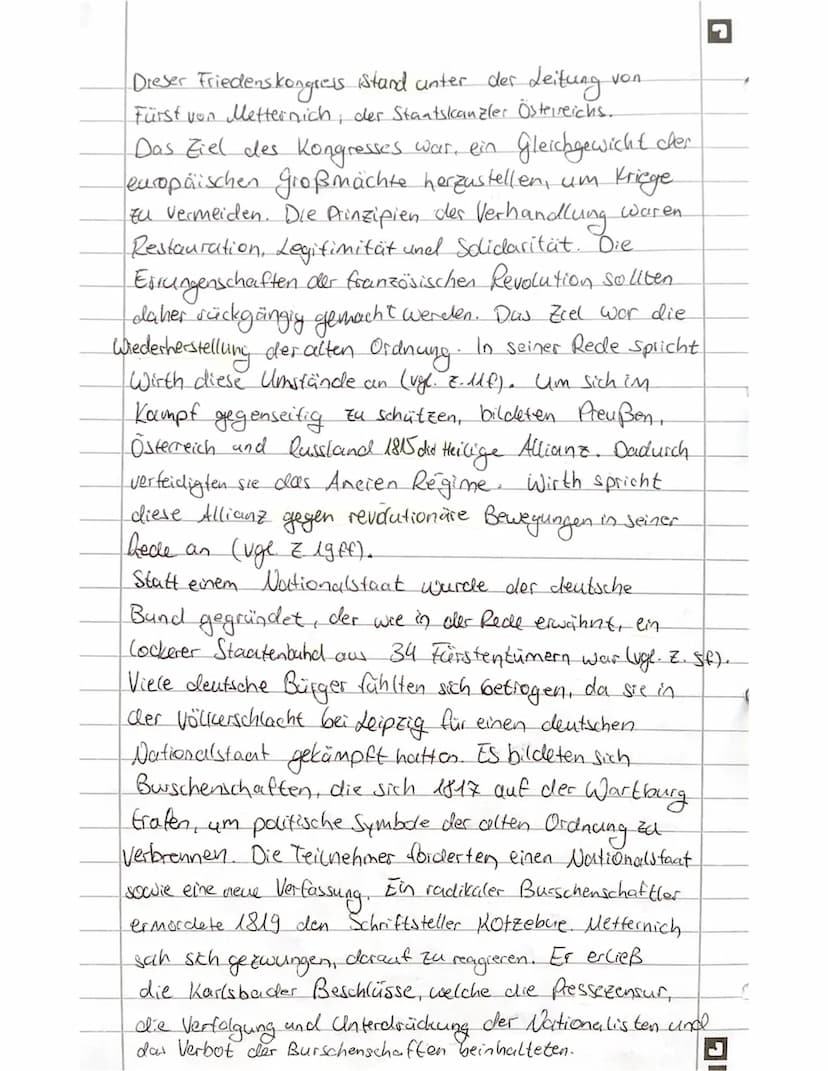 Dieser Friedenskongress stand unter der Leitung von
Fürst von Metternich, der Staatskanzler Österreichs.
Das Ziel des Kongresses war, ein Gleichgewicht der
europäischen Großmächte herzustellen, um Kriege
zu vermeiden. Die Prinzipien der Verhandlung waren
Restauration, Legitimität und Solidarität. Die
Errungenschaften der französischen Revolution sollten
daher rückgängig gemacht werden. Das Ziel war die
Wiederherstellung der alten Ordnung. In seiner Rede spricht
Wirth diese Umstände an (vgl. Z. 11f). Um sich im
Kampf gegenseitig zu schützen, bildeten Preußen,
Österreich und Russland 1815 die Heilige Allianz. Dadurch
verteidigten sie das Ancien Régime. Wirth spricht
diese Allianz gegen revolutionäre Bewegungen in seiner
Rede an (vgl. Z 19ff).
Statt einem Nationalstaat wurde der deutsche
Bund gegründet, der wie in der Rede erwähnt, ein
lockerer Staatenbund aus 34 Fürstentümern war (vgl. Z. 5f).
Viele deutsche Bürger fühlten sich betrogen, da sie in
der Völkerschlacht bei Leipzig für einen deutschen
Nationalstaat gekämpft hatten. Es bildeten sich
Burschenschaften, die sich 1817 auf der Wartburg
trafen, um politische Symbole der alten Ordnung zu
verbrennen. Die Teilnehmer forderten einen Nationalstaat
sowie eine neue Verfassung. Ein radikaler Burschenschaftler
ermordete 1819 den Schriftsteller Kotzebue. Metternich
sah sich gezwungen, darauf zu reagieren. Er erließ
die Karlsbader Beschlüsse, welche die Pressezensur,
die Verfolgung und Unterdrückung der Nationalisten und
das Verbot der Burschenschaften beinhalteten.